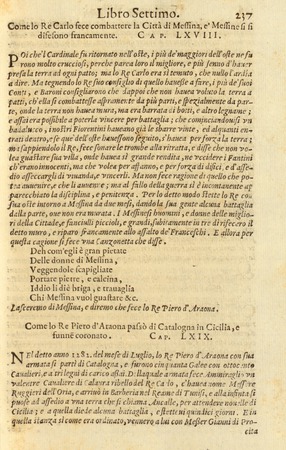 Libro Settimo. 237
Come lo Re Carlo fece combattere la Città di Messina, e' Messinesi si
difesono francamente. CAP. LXVIII.
POi che'l Cardinale fu ritornato nell'oste, i più de' maggiori dell'oste ne fu
rono molto crucciosi, perche parea loro il migliore, e più senno d'haver
presa la terra ad ogni patto; ma lo Re Carlo era sì temuto, che nullo l'ardia
a dire. Ma tegnendo lo Re suo consiglio di quello havesse a fare, i più de' Con
ti, e Baroni consigliarono che dappoi che non havea voluto la terra a
patti, ch'ella si combattesse aspramente da più parti, e spezialmente da par-
te, onde la terra non havea mura, ma era barrata di botti, e altro legname;
e assai era possibile a poterla vincere per battaglia; che cominciandosi un
badalucco, i nostri Fiorentini haveano già le sbarre vinte, ed alquanti en-
trati dentro, e se que' dell'oste l'havessono seguito, s'havea per forza la terra;
ma sappiendolo il Re, fece sonare le trombe alla ritratta, e disse che non vo-
lea guastare sua villa, onde havea sì grande rendita, ne uccidere i Fantini
ch'erano innocenti, ma che volea per assanno, e per forza di difici, e d'asse-
dio asseccargli di vivanda, e vincerli. Ma non fece ragione di quello che po-
tea avvenire, e che li avenne; ma al fallo della guerra è incontanente ap
parecchiato la disciplina, e penitenza. Per lo detto modo stette lo Re co
sua oste intorno a Messina da due mesi, dando la sua gente alcuna battaglia
dalla parte, ove non era murata. I Messinesi huomini, e donne delle miglio-
ri della Cittade, e fanciulli piccioli, e grandi, subitamente in tre dì feciono il
detto muro, e riparo francamente allo assalto de' Franceschi. E allora per
questa cagione si fece una Canzonetta che disse.
Deh com'egli è gran pietate
Delle donne di Messina,
Veggendole scapigliate
Portare pietre, e calcina,
Iddio li dia briga, e travaglia
Chi Messina vuol guastare &c.
Lasceremo di Messina, e diremo che fece lo Re Piero d'Araona.
Come lo Re Piero d'Araona passò di Catalogna in Cicilia, e
funne coronato. CAP. LXIX.
NEl detto anno 1281. del mese di Luglio, lo Re Piero d'Araona con sua
armata si partì di Catalogna, e furono cinquanta Galee con ottocento
Cavalieri, e altri legni di carico assai. Della quale armata fece Ammiraglio un
valentre Cavaliere di Calavra ribello del Re Carlo, c'havea nome Messire
Ruggieri dell'Oria, e arrivò in Barberia nel Reame di Tunisi, e alla infinta si
puose ad assedio a una terra che si chiama Ancalle, per attendere novelle di
Cicilia; e a quella diede alcuna battaglia, e stettevi quindici giorni. E in
quella stanza sì come era ordinato, vennero a lui con Messer Gianni di Pro-
cita